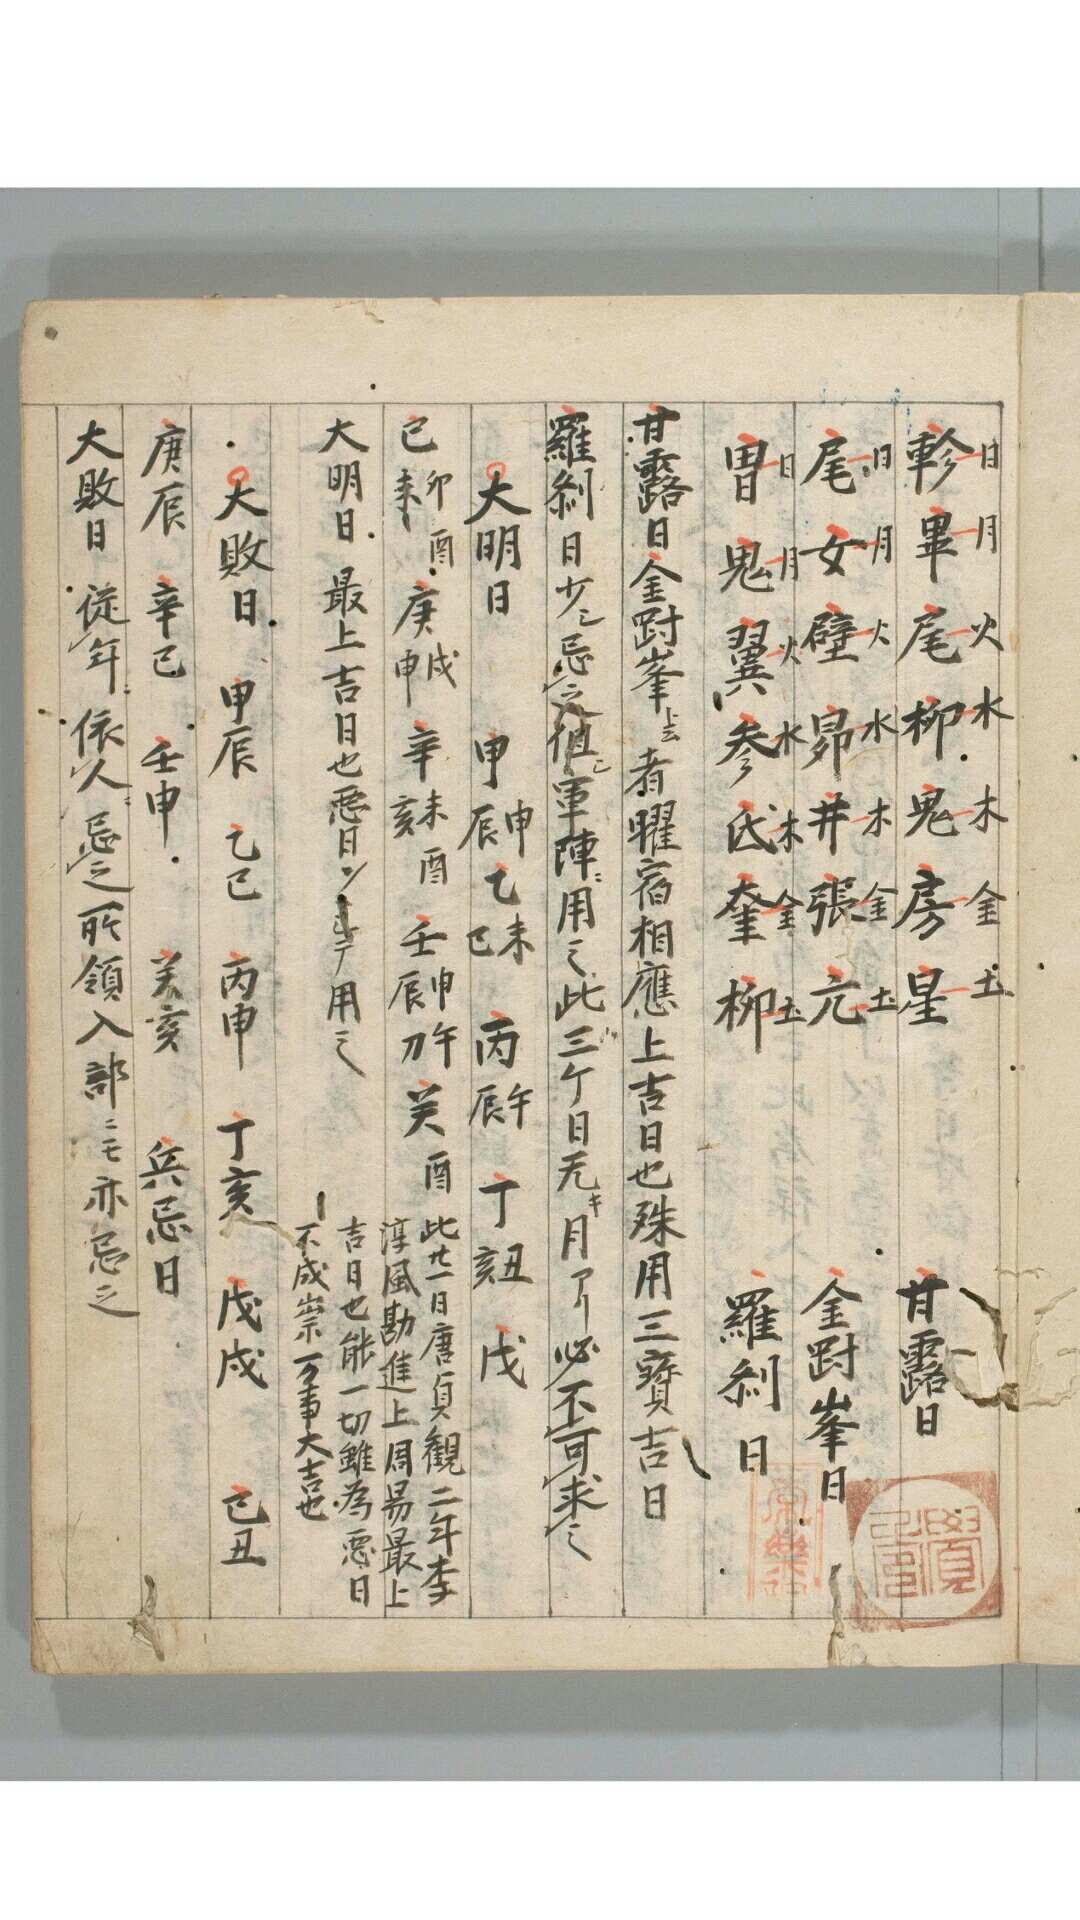 軫日 畢月 尾火 柳水 鬼木 房金 星土 甘露日
尾日 女月 壁火 昴水 井木 張金 亢土 金尉峯日
胃日 鬼月 翼火 参水 氐木 奎金 柳土 羅刹日
甘露日金尉峯上云者曜宿相應上吉日也殊用三寳吉日
羅刹日少々忌之但軍陣ニ用之此三ケ日无キ月了必不可求之
大明日 甲辰申 乙巳未 丙辰午 丁亥丑 戊
己未卯酉 庚申戌 辛亥未酉 壬辰申午 癸酉
此廿一日唐貞観二年李
淳風勘進上周易最上
吉日也能一切雖為悪日
不成崇万事大吉也
大明日 最上吉日也悪日 用之
大敗日 甲辰 乙巳 丙申 丁亥 戊戌 己丑
庚辰 辛巳 壬申 癸亥 兵忌日
大敗日 従年ニ依人ニ忌之所領入部ニモ亦忌之